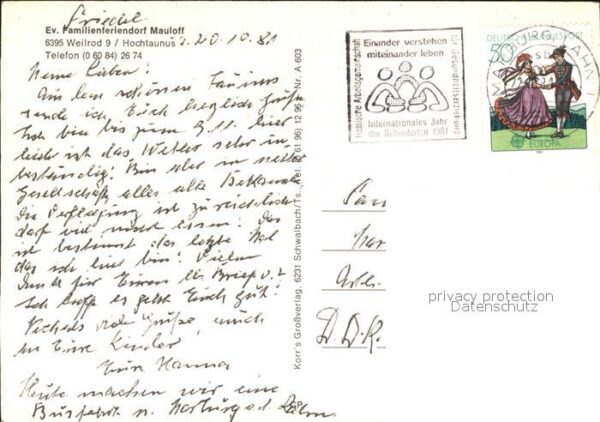 Friedel
Ev. Familienferiendorf Mauloff
6395 Weilrod 9 / Hochtaunus
Telefon (0 60 84) 26 74
d. 20.10.81
Meine Lieben!
Aus dem schönen Taunus
sende ich Euch herzliche Grüße
Ich bin bis zum hier
leider ist das Wetter sehr un-
beständig! Bin aber in netter
Gesellschaft, alles alte Bekannte
Die Verpflegung ist zu reichlich
darf viel essen! Das
ist bestimmt das letzte Mal
das ich hier bin! Vielen
Dank für Euren lb. Brief v.
Ich hoffe es geht Euch gut!
viele Grüße, auch
an Eure Kinder,
Eure Hanna
Heute machen wir eine
Busfahrt n. Marburg a. d. Lahn
Korr's Großverlag, 6231 Schwalbach/Ts., Tel. (0 61 96) 12 95 Nr. A 603
Hessische Arbeitsgemeinschaft
für Gesundheitserziehung
Einander verstehen
miteinander leben
Internationales Jahr
der Behinderten 1981
DEUTSCHE BUNDESPOST
50
EUROPA
1981
MARBURG, LAHN 1
D.D.R.
privacy protection
Datenschutz